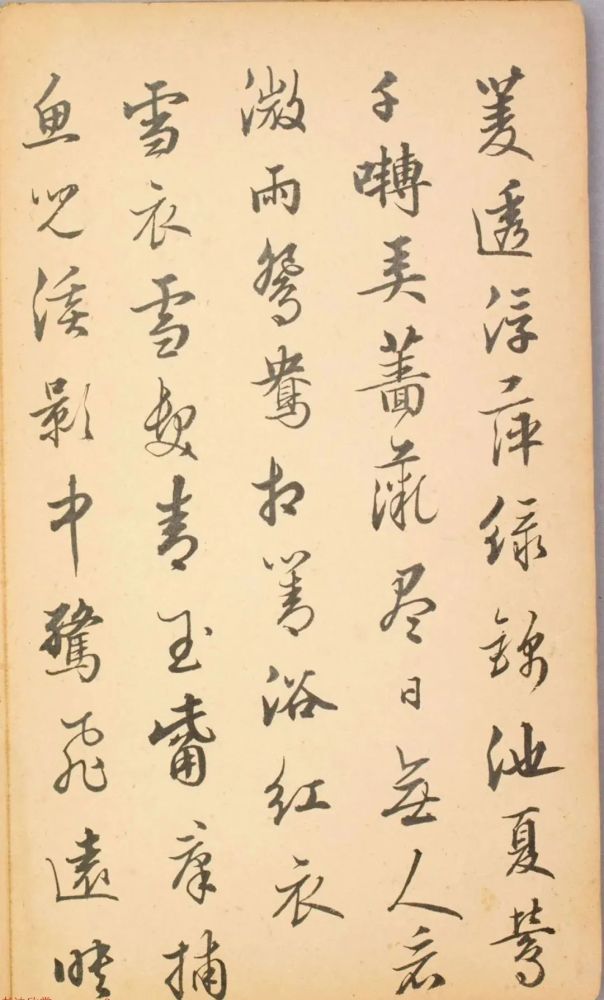 菱透浮萍緑錦池夏鶯
千囀弄薔薇尽日無人看
微雨鴛鴦相對浴紅衣
雪衣雪髮青玉觜羣捕
魚兒溪影中驚飛遠映